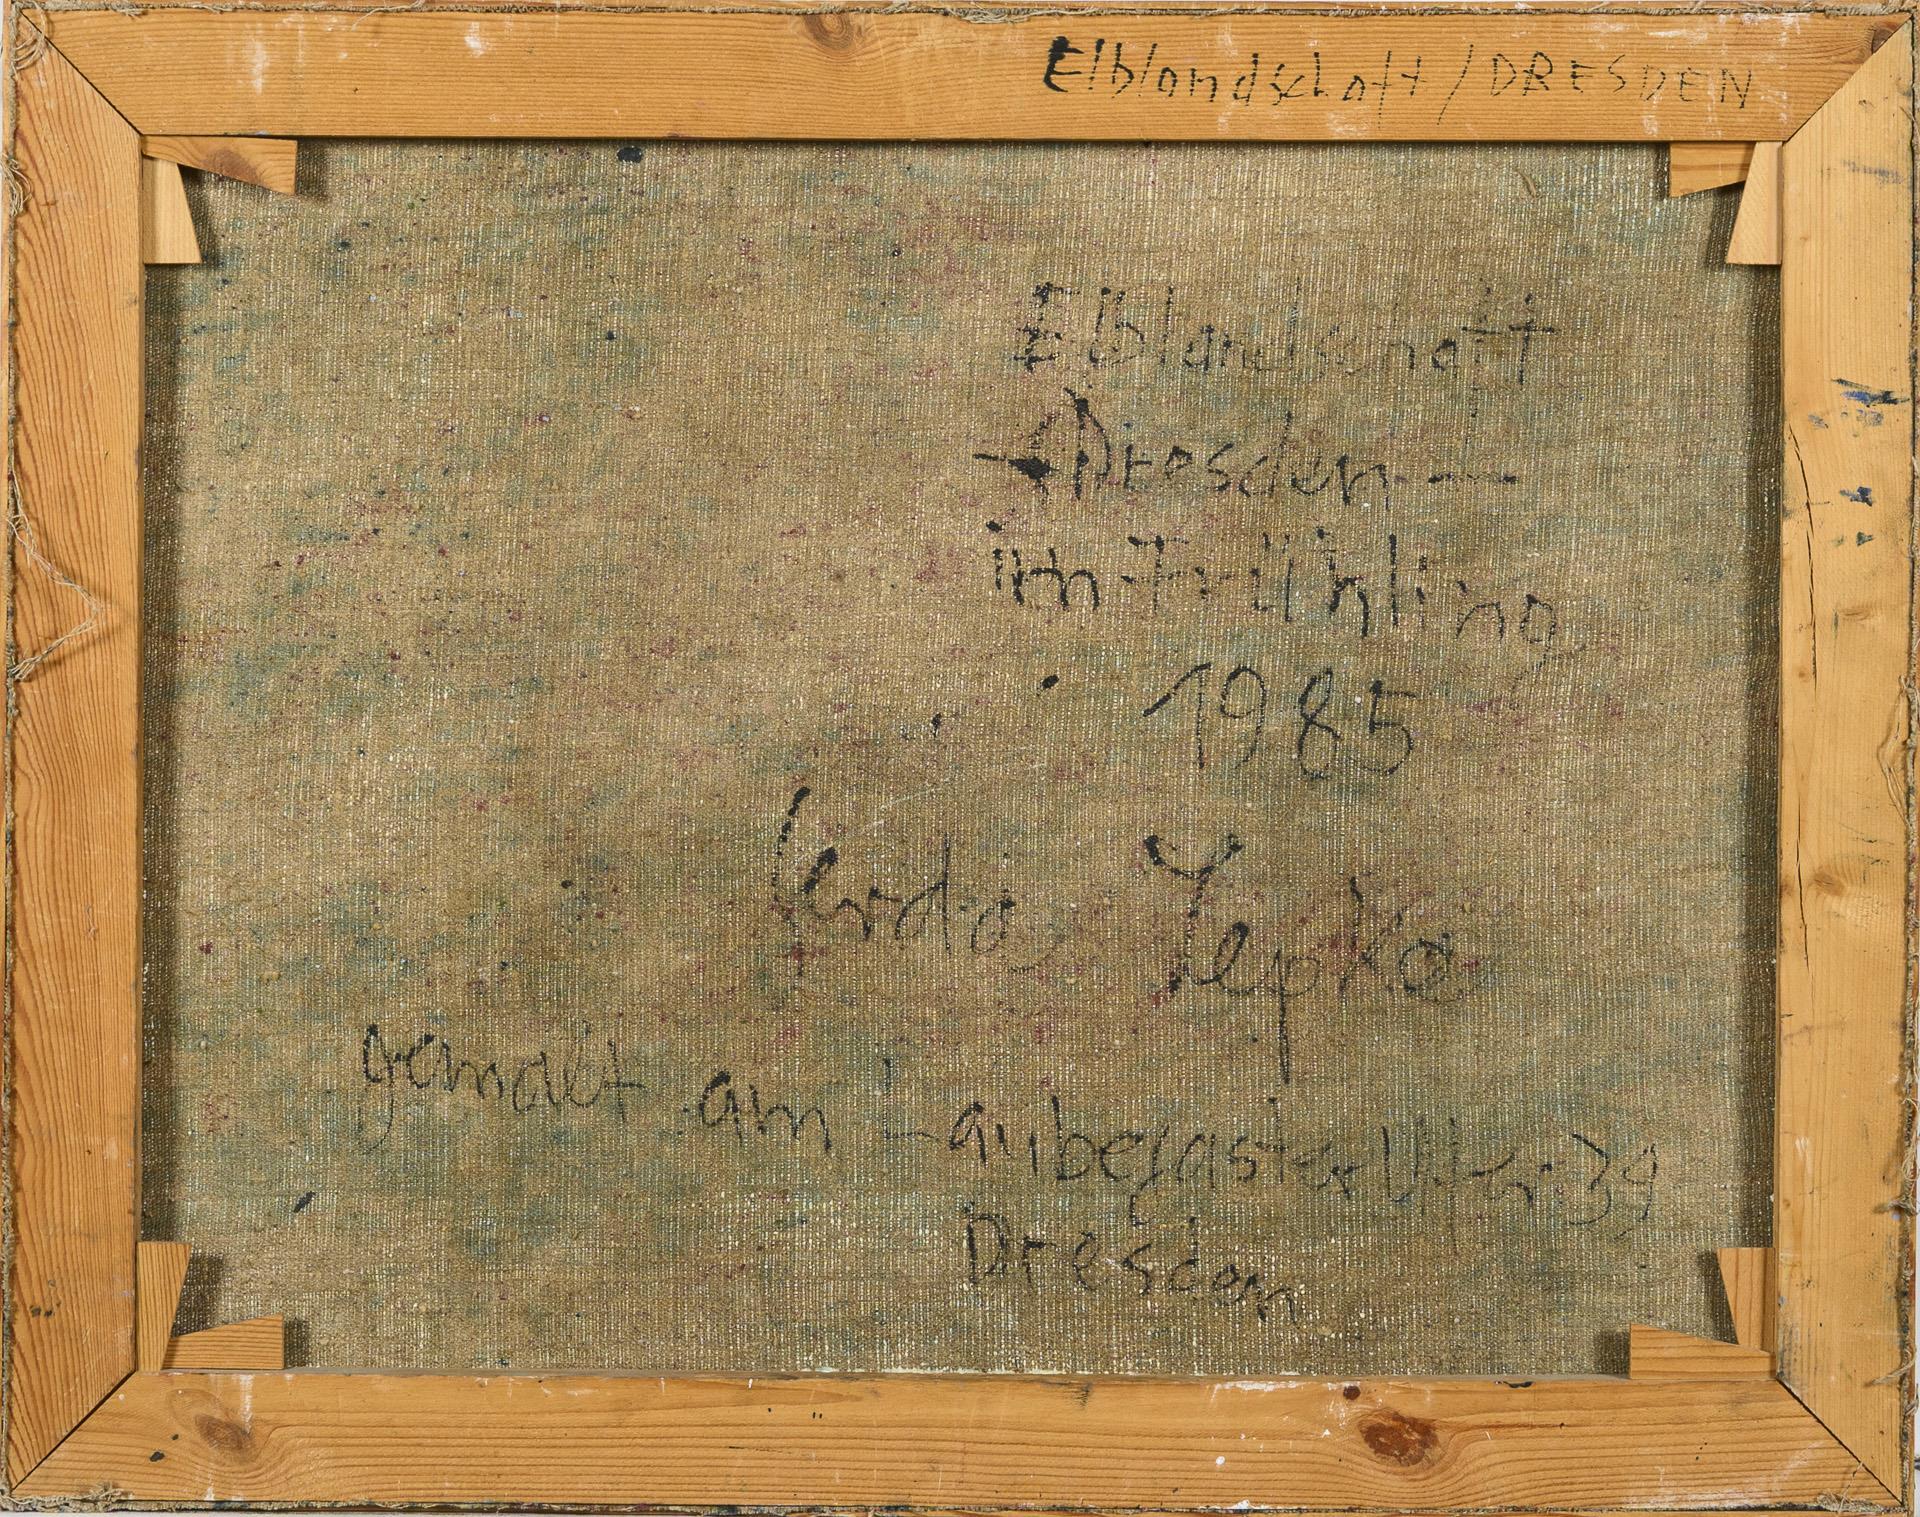 Elblandschaft / DRESDEN
Elblandschaft
- Dresden -
im Frühling
1985
Gerda Lepke
gemalt am Laubegaster Ufer 39
Dresden